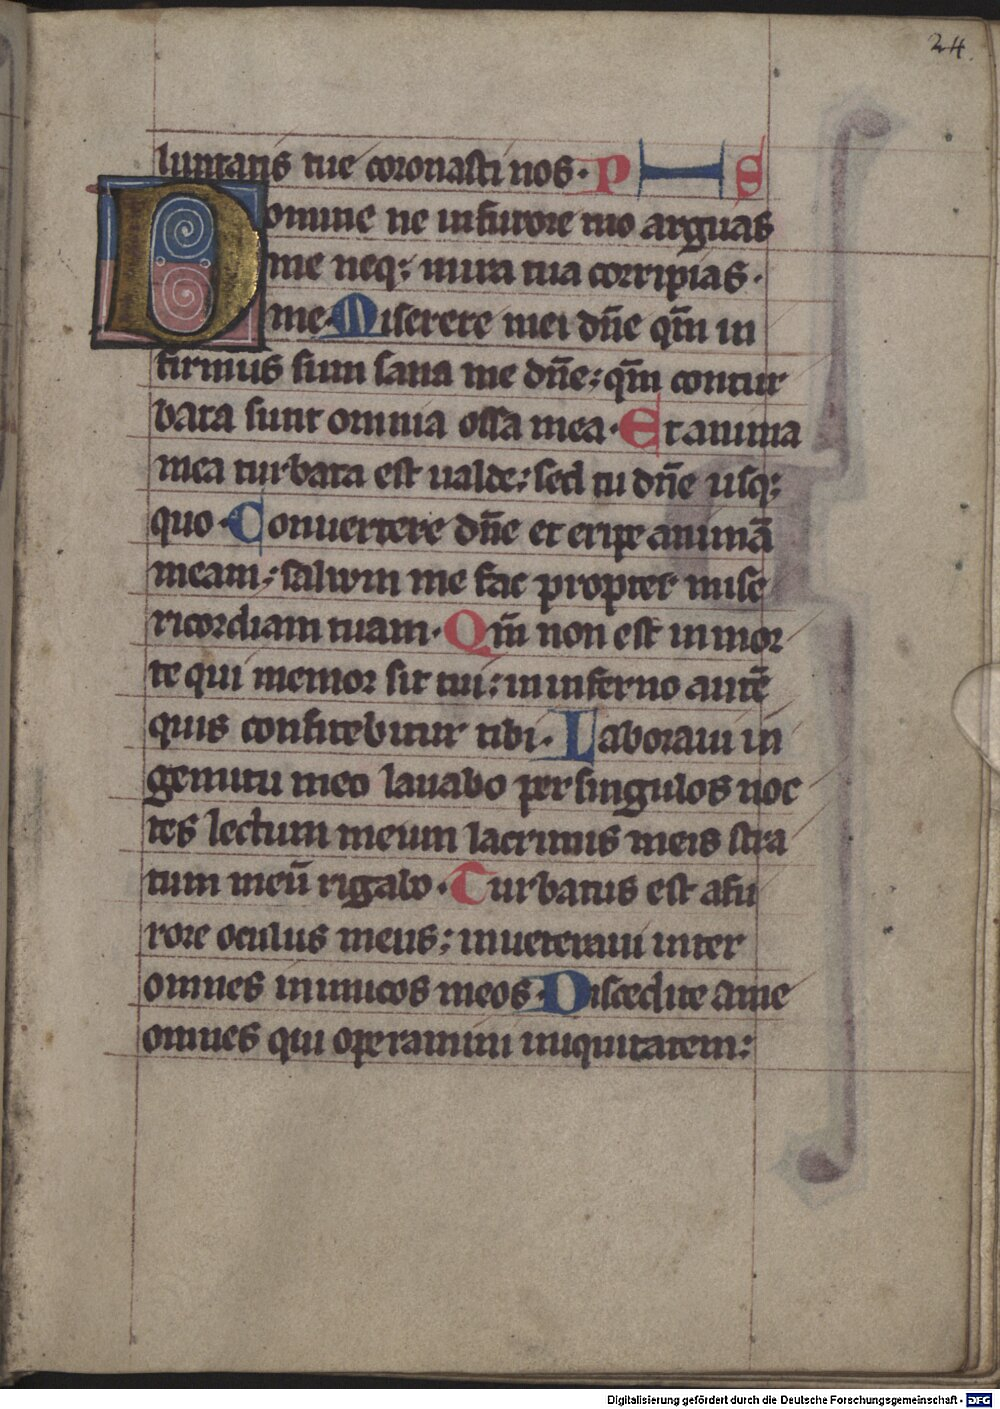 24.
luntatis tue coronasti nos. P S
Domine ne in furore tuo arguas
me neq; in ira tua corripias.
me. Miserere mei dn̄e qm̄ in
firmus sum sana me dn̄e: qm̄ contur
bata sunt omnia ossa mea. Et anima
mea turbata est ualde: sed tu dn̄e usq;
quo. Conuertere dn̄e et eripe animā
meam: saluum me fac propter mise
ricordiam tuam. Qm̄ non est in mor
te qui memor sit tui: in inferno autē
quis confitebitur tibi. Laboraui in
gemitu meo lauabo per singulos noc
tes lectum meum lacrimis meis stra
tum meū rigabo. Turbatus est a fu
rore oculus meus: inueteraui inter
omnes inimicos meos. Discedite a me
omnes qui operamini iniquitatem:
Digitalisierung gefördert durch die Deutsche Forschungsgemeinschaft - DFG